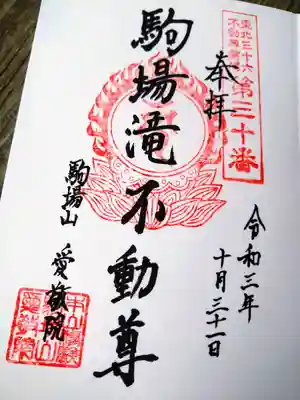 東北三十六
不動尊霊場
第三十番
奉拝
令和三年
十月三十一日
駒場滝不動尊
駒場山 愛敬院